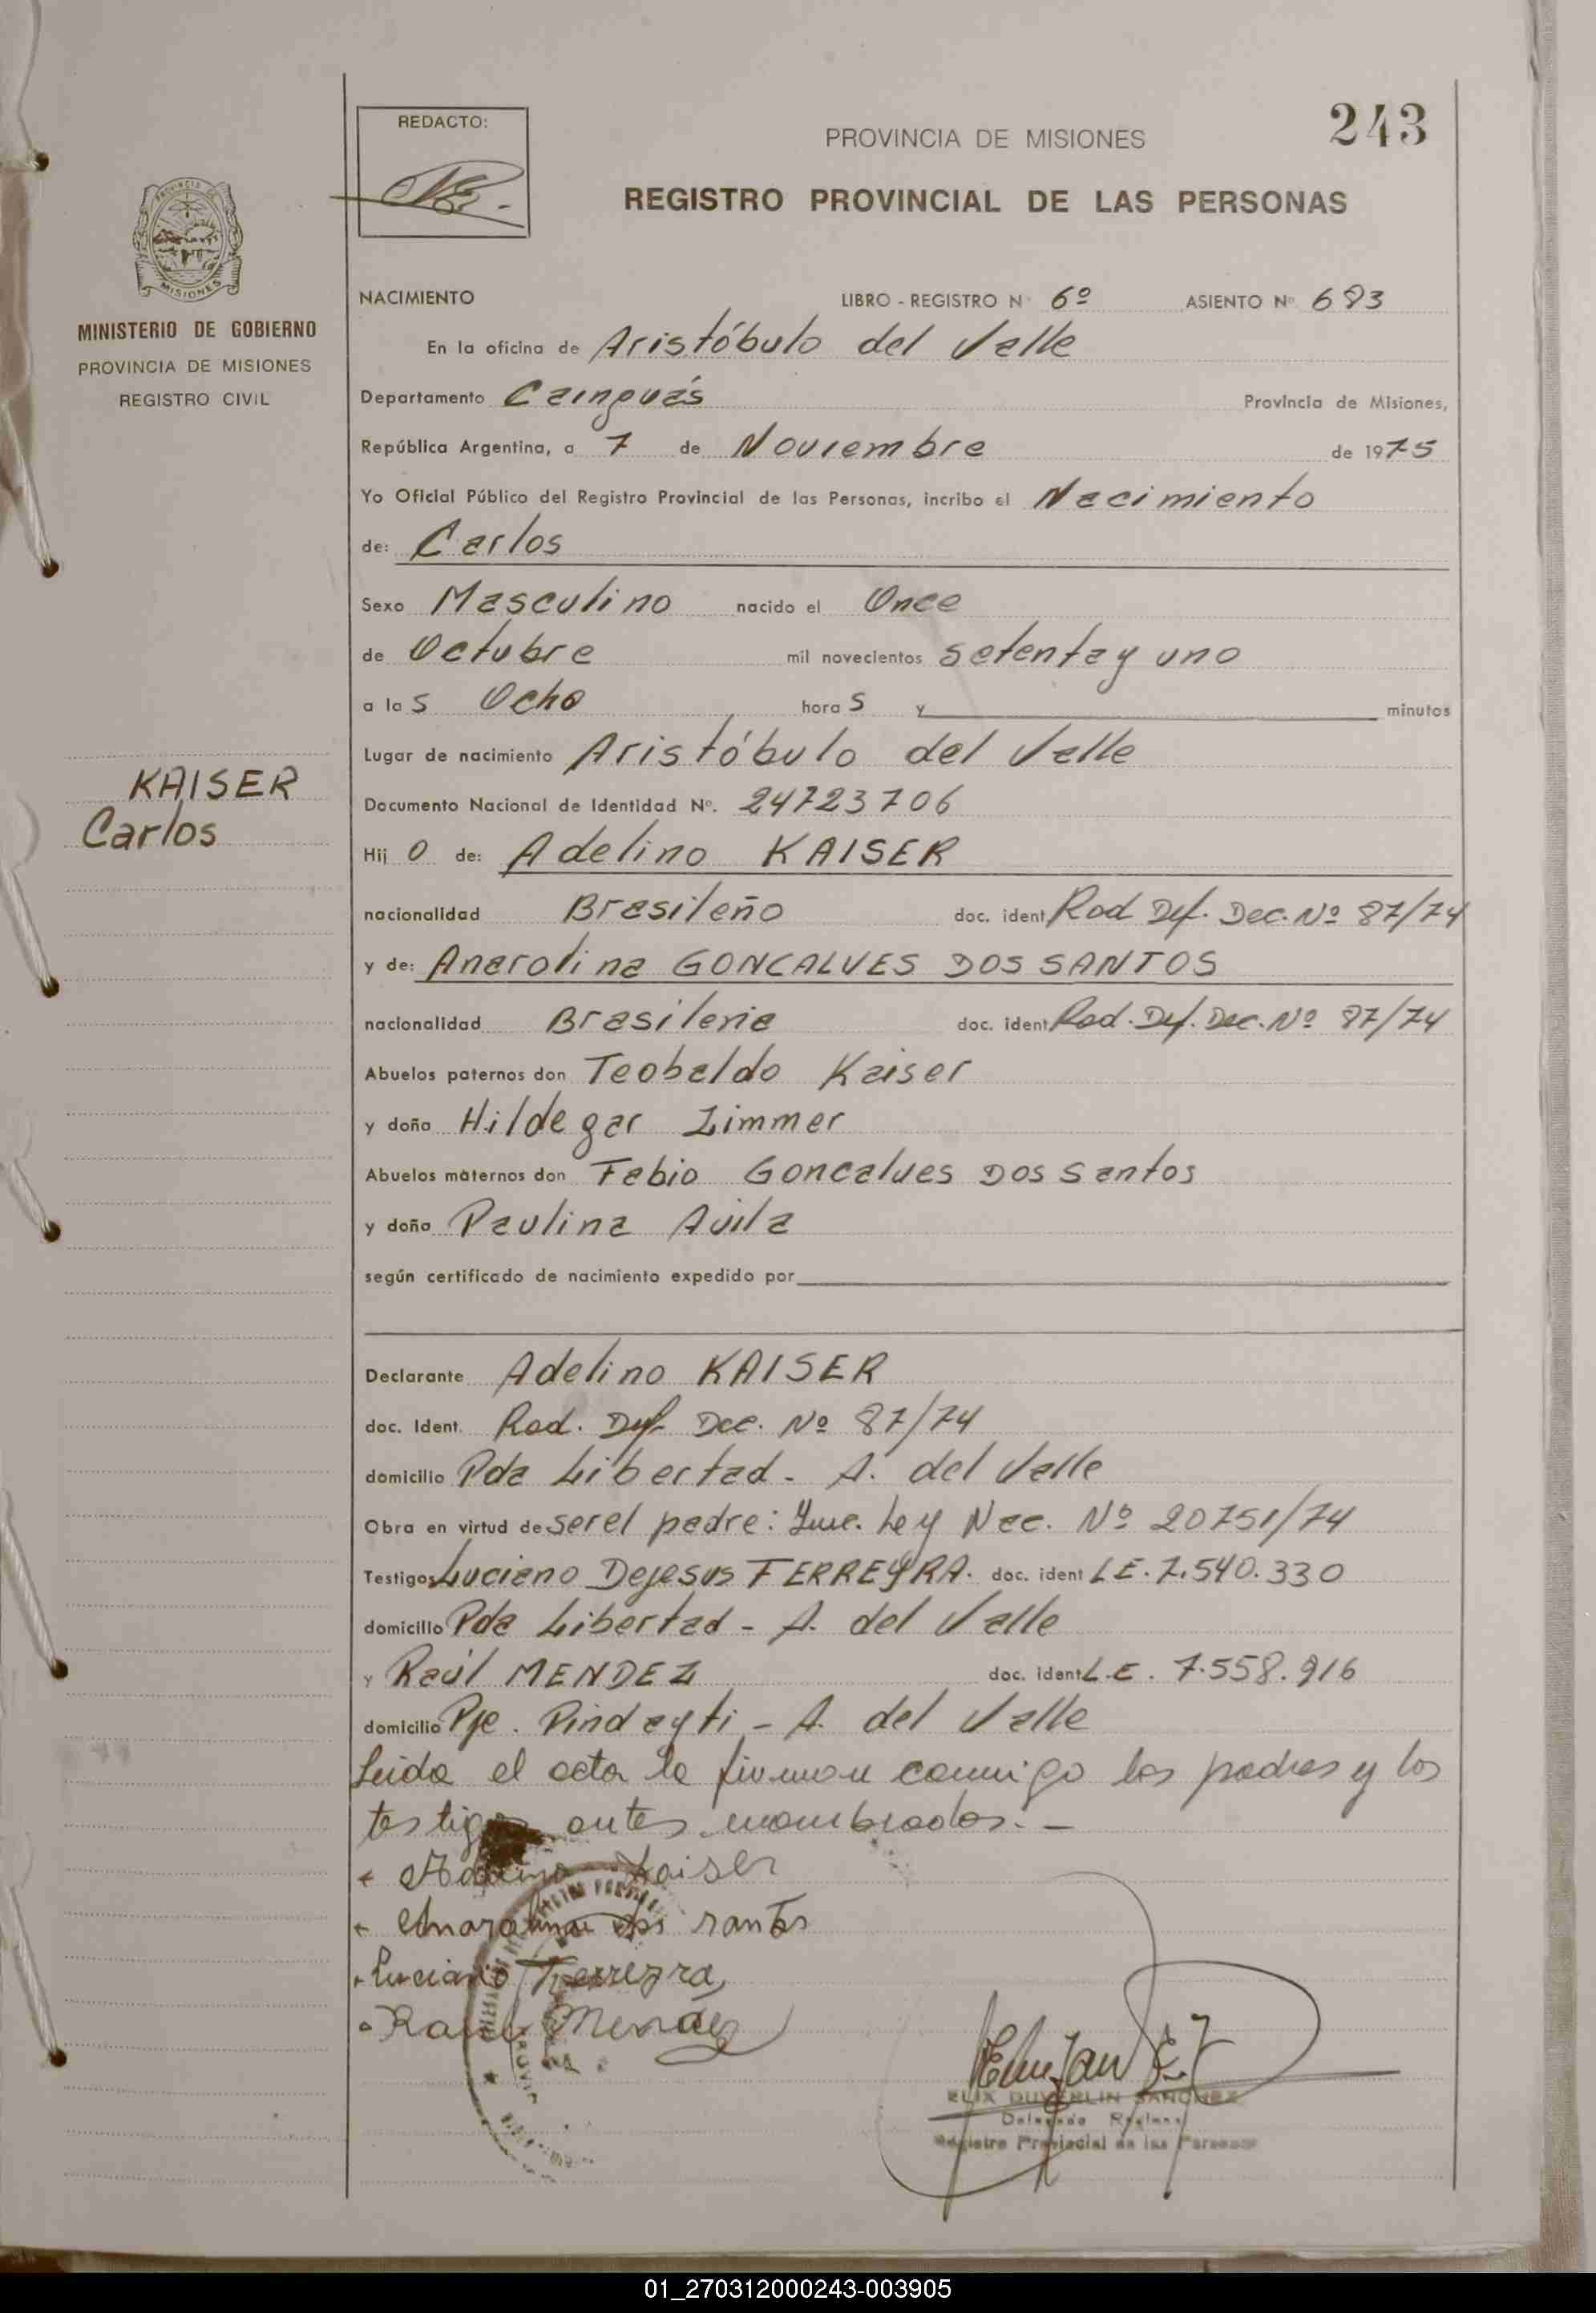 243
REDACTO:
PROVINCIA DE MISIONES
REGISTRO PROVINCIAL DE LAS PERSONAS
MISIONES
MINISTERIO DE GOBIERNO
PROVINCIA DE MISIONES
REGISTRO CIVIL
KAISER
Carlos
NACIMIENTO LIBRO - REGISTRO Nº 6º ASIENTO Nº 683
En la oficina de Aristóbulo del Valle
Departamento Cainguás Provincia de Misiones,
República Argentina, a 7 de Noviembre de 1975
Yo Oficial Público del Registro Provincial de las Personas, incribo el Nacimiento
de: Carlos
Sexo Masculino nacido el Once
de Octubre mil novecientos setenta y uno
a las Ocho horas y minutos
Lugar de nacimiento Aristóbulo del Valle
Documento Nacional de Identidad Nº. 24723706
Hijo de: Adelino KAISER
nacionalidad Brasileño doc. ident Rad Def. Dec. Nº 87/74
y de: Anarolina GONCALVES DOS SANTOS
nacionalidad Brasileña doc. ident Rad. Def. Dec. Nº 87/74
Abuelos paternos don Teobaldo Kaiser
y doña Hildegar Zimmer
Abuelos maternos don Fabio Goncalves Dos Santos
y doña Paulina Avila
según certificado de nacimiento expedido por
Declarante Adelino KAISER
doc. Ident. Rad. Def. Dec. Nº 87/74
domicilio Pda Libertad - A. del Valle
Obra en virtud de ser el padre: Ley Nac. Nº 20751/74
Testigos Luciano Dejesus FERREYRA. doc. ident L E. 7.540.330
domicilio Pda Libertad - A. del Valle
y Raúl MENDEZ doc. ident L.E. 7.558.916
domicilio Pje. Pindayti - A. del Valle
Leida el acta la firman conmigo los padres y los
testigos antes nombrados. -
Adelino Kaiser
Anarolina dos santos
Luciano Ferreyra
Raul Mendez
ELIX DUVERLIN SANCHEZ
Registro Provincial de las Personas
01_270312000243-003905